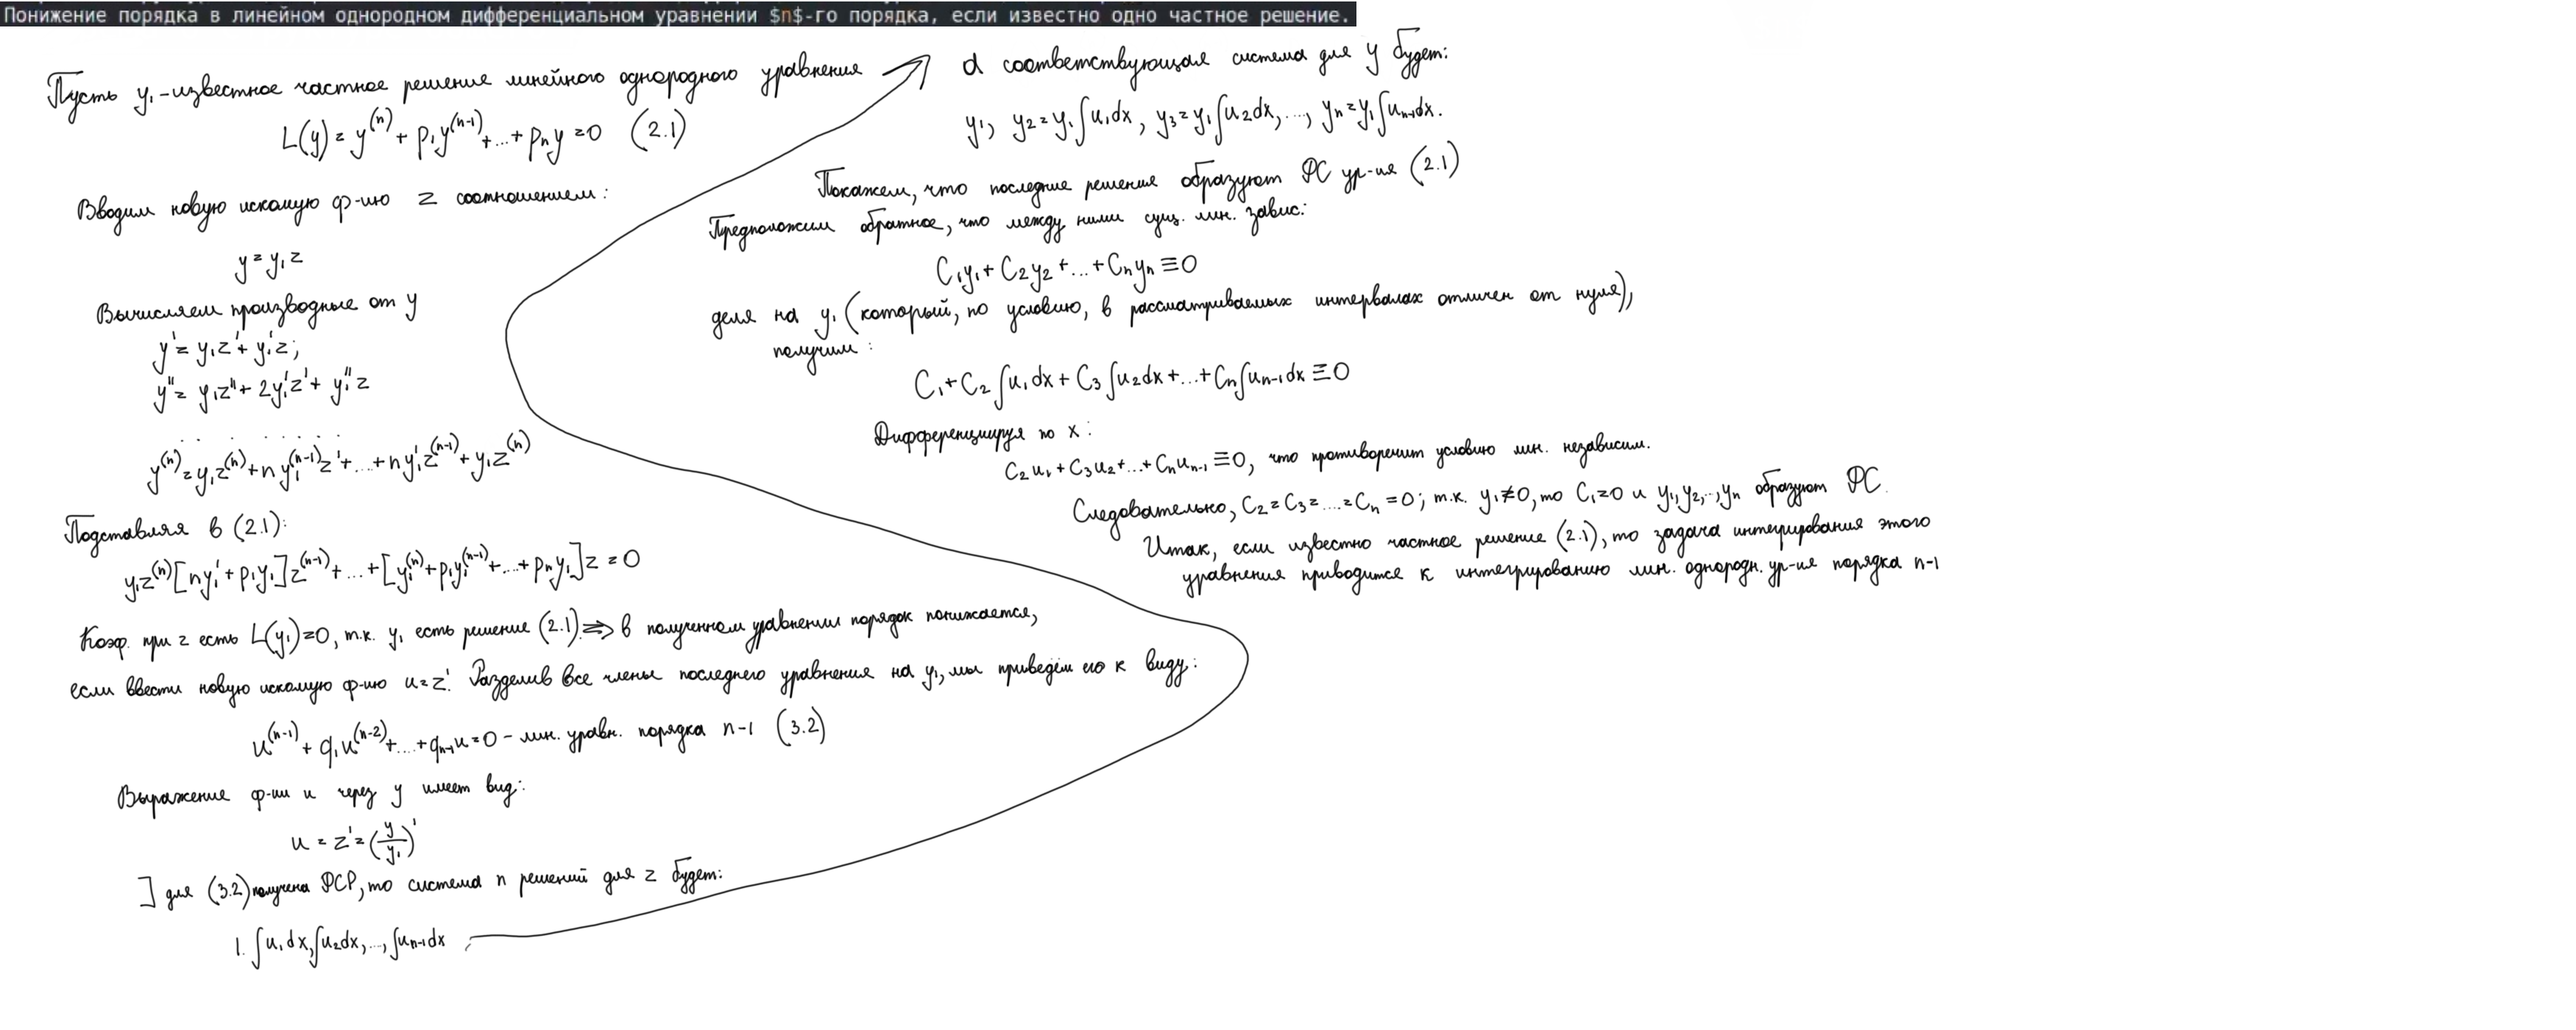 Понижение порядка в линейном однородном дифференциальном уравнении $n$-го порядка, если известно одно частное решение.
Пусть y₁ - известное частное решение линейного однородного уравнения
L(y) = y⁽ⁿ⁾ + p₁y⁽ⁿ⁻¹⁾ + ... + pₙy = 0 (2.1)
Вводим новую искомую ф-ию z соотношением:
y = y₁z
Вычисляем производные от y
y' = y₁z' + y₁'z;
y'' = y₁z'' + 2y₁'z' + y₁''z
. . . . . . .
y⁽ⁿ⁾ = y₁z⁽ⁿ⁾ + ny₁⁽ⁿ⁻¹⁾z' + ... + ny₁'z⁽ⁿ⁻¹⁾ + y₁z⁽ⁿ⁾
Подставляя в (2.1):
y₁z⁽ⁿ⁾[ny₁' + p₁y₁]z⁽ⁿ⁻¹⁾ + ... + [y₁⁽ⁿ⁾ + p₁y₁⁽ⁿ⁻¹⁾ + ... + pₙy₁]z = 0
Коэф. при z есть L(y₁) = 0, т.к. y₁ есть решение (2.1) ⇒ в полученном уравнении порядок понижается,
если ввести новую искомую ф-ию u = z'. Разделив все члены последнего уравнения на y₁, мы приведём его к виду:
u⁽ⁿ⁻¹⁾ + q₁u⁽ⁿ⁻²⁾ + ... + qₙ₋₁u = 0 - лин. уравн. порядка n-1 (3.2)
Выражение ф-ии u через y имеет вид:
u = z' = (y/y₁)'
] для (3.2) получена ФСР, то система n решений для z будет:
1. ∫u₁dx, ∫u₂dx, ..., ∫uₙ₋₁dx,
а соответствующая система для y будет:
y₁, y₂ = y₁∫u₁dx, y₃ = y₁∫u₂dx, ..., yₙ = y₁∫uₙ₋₁dx.
Покажем, что последние решения образуют ФС ур-ия (2.1)
Предположим обратное, что между ними сущ. лин. завис:
C₁y₁ + C₂y₂ + ... + Cₙyₙ ≡ 0
деля на y₁ (который, по условию, в рассматриваемых интервалах отличен от нуля),
получим:
C₁ + C₂∫u₁dx + C₃∫u₂dx + ... + Cₙ∫uₙ₋₁dx ≡ 0
Дифференцируя по x:
C₂u₁ + C₃u₂ + ... + Cₙuₙ₋₁ ≡ 0, что противоречит условию лин. независим.
Следовательно, C₂ = C₃ = .... = Cₙ = 0; т.к. y₁ ≠ 0, то C₁ = 0 и y₁, y₂, .., yₙ образуют ФС.
Итак, если известно частное решение (2.1), то задача интегрирования этого
уравнения приводится к интегрированию лин. однородн. ур-ия порядка n-1